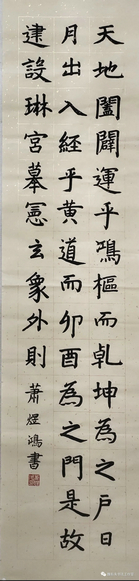 天地闔闢運乎鴻樞而乹坤為之戶日
月出入經乎黃道而卯酉為之門是故
建設琳宮摹憲玄象外則
蕭煜鴻書